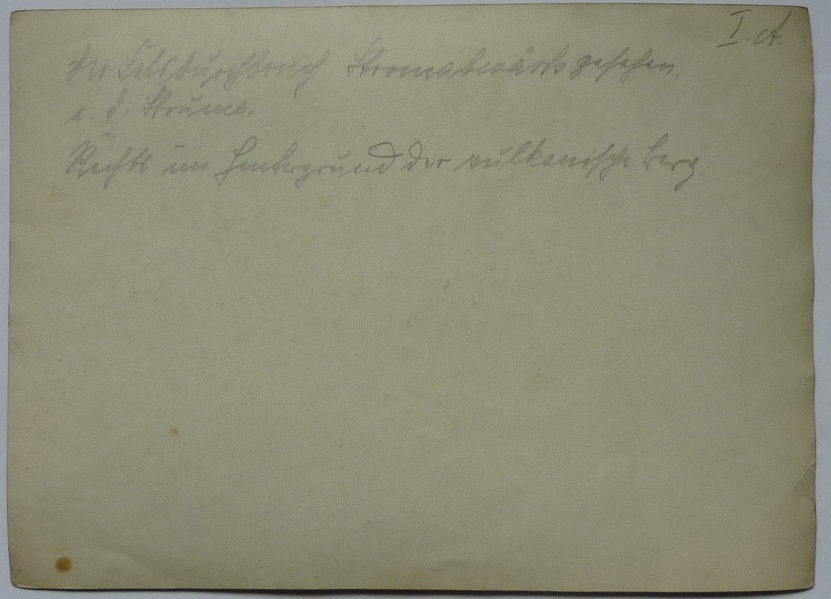 I. A.
Der Felsdurchbruch Stromabwärts gesehen.
a. d. Struma.
Rechts im Hintergrund der vulkanische Berg